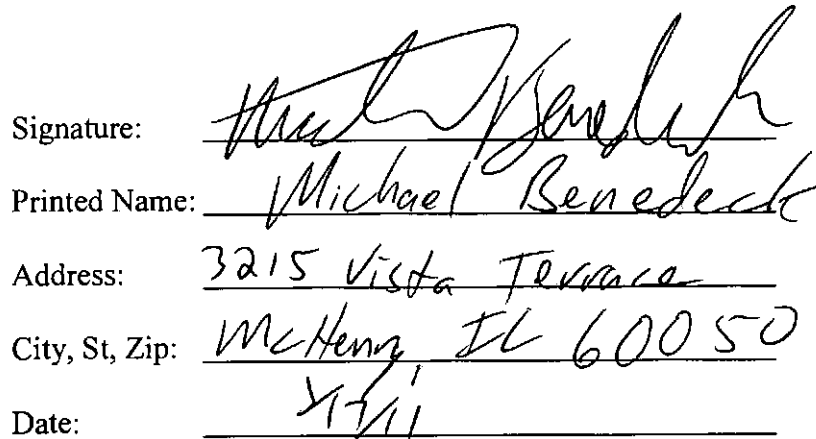 Signature:
Printed Name: Michael Benedeck
Address: 3215 Vista Terrace
City, St, Zip: McHenry IL 60050
Date: